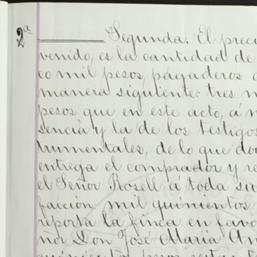 2ª
Segunda. El preci
venido, es la cantidad de
co mil pesos, pagaderos
manera siguiente: tres m
pesos que en este acto, á m
sencia y la de los testigos
trumentales, de lo que do
entrega el comprador y re
el Señor Rosell á toda su
facción mil quinientos
reporta la finca en favo
ñor Don José María An